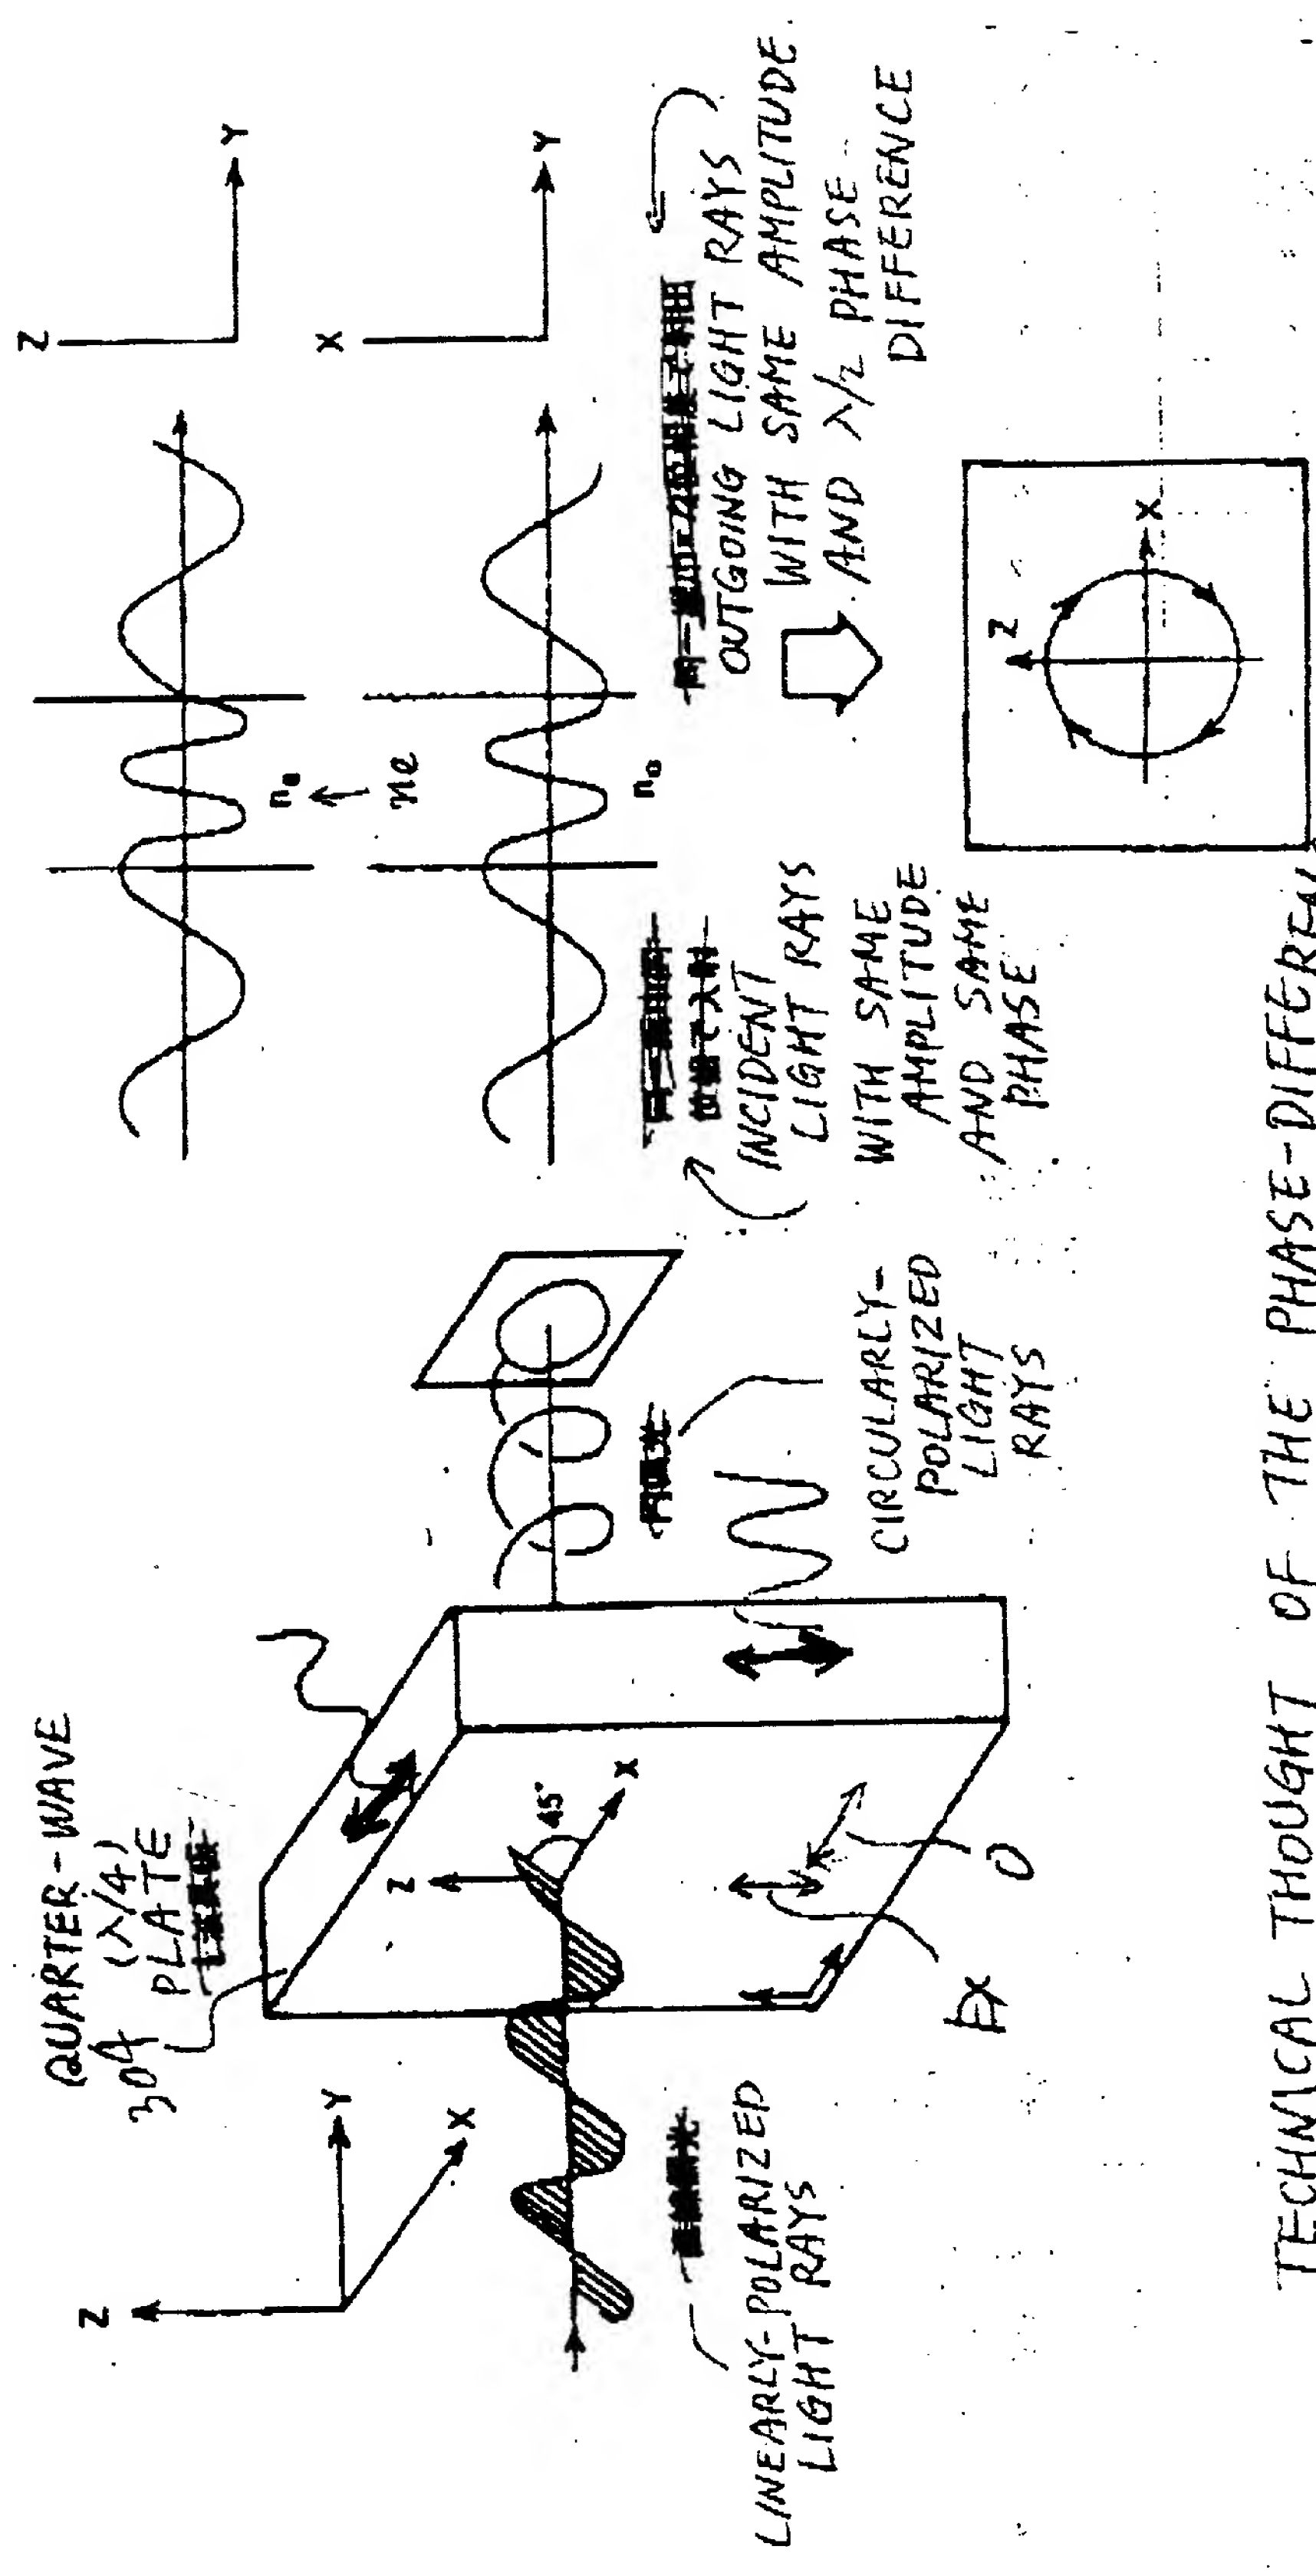 QUARTER-WAVE
304 (λ/4)
PLATE
Z
Y
X
Z
X
45°
LINEARLY-POLARIZED
LIGHT RAYS
EX
O
CIRCULARLY-
POLARIZED
LIGHT
RAYS
n₀
↑
ne
n₀
Z
Y
X
Y
INCIDENT
LIGHT RAYS
WITH SAME
AMPLITUDE
AND SAME
PHASE
OUTGOING LIGHT RAYS
WITH SAME AMPLITUDE
AND λ/2 PHASE
DIFFERENCE
Z
X
TECHNICAL THOUGHT OF THE PHASE-DIFFEREN